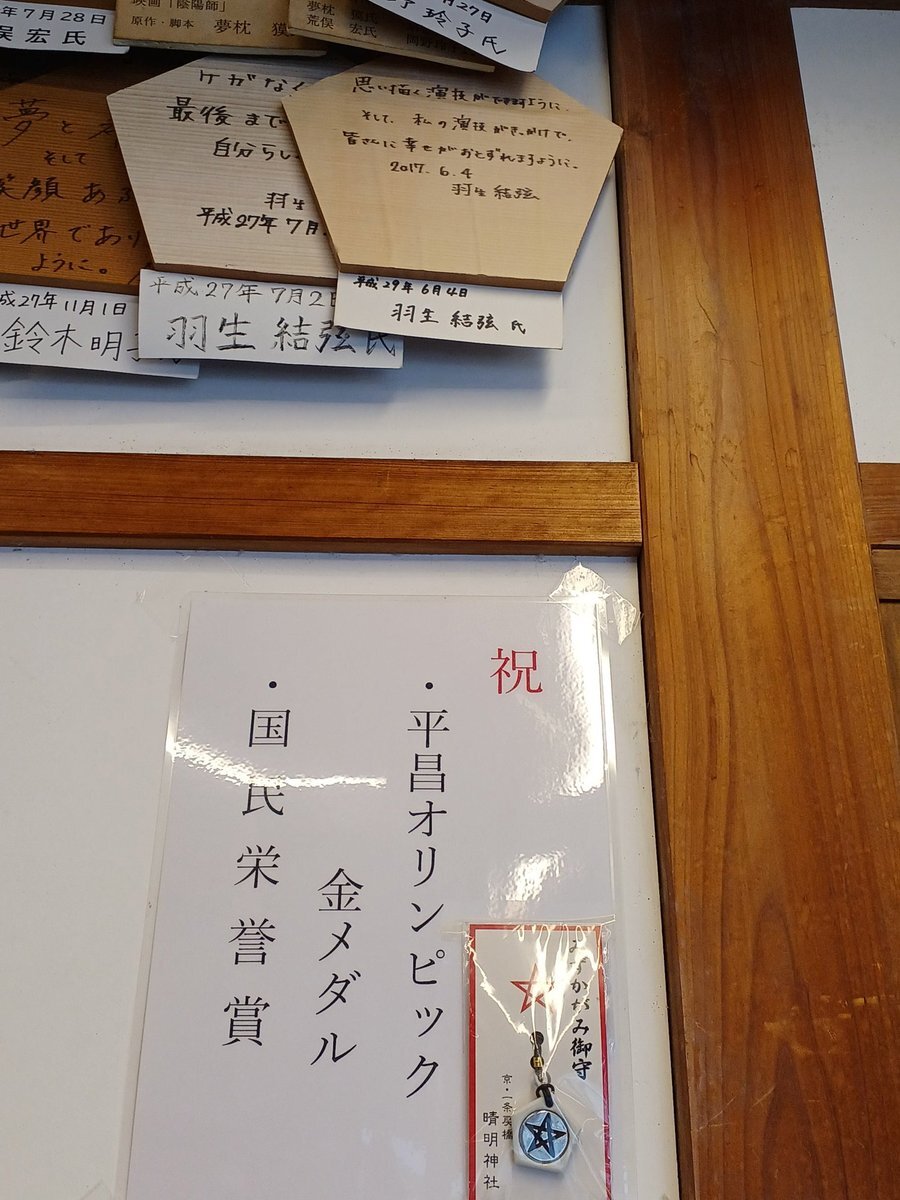 年7月28日
俣宏氏
映画「陰陽師」
原作・脚本 夢枕 獏
夢枕 獏氏
荒俣 宏氏
月27日
玲子氏
夢と
そして
笑顔 あ
世界であり
ように。
成27年11月1日
鈴木明
ケガなく
最後まで
自分らし
羽生
平成27年7月
平成27年7月2日
羽生 結弦氏
思い描く演技ができますように。
そして、私の演技がきっかけで、
皆さんに幸せがおとずれますように。
2017.6.4
羽生結弦
平成29年6月4日
羽生 結弦 氏
祝
・平昌オリンピック
金メダル
・国民栄誉賞
みずかがみ御守
京・一条戻橋
晴明神社